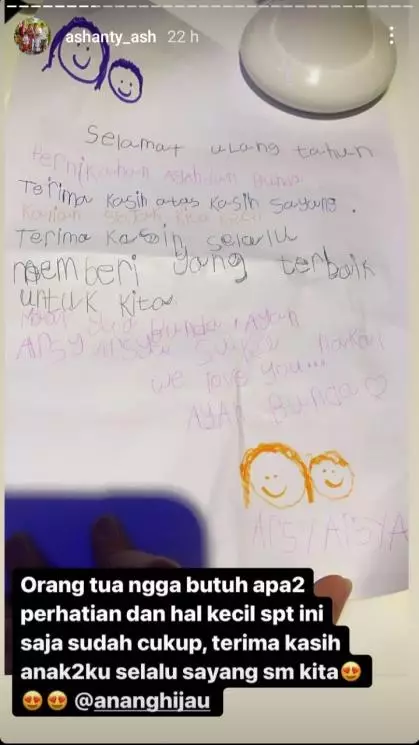 ashanty_ash 22 h
Selamat ulang tahun
Pernikahan Ayah dan Bunda
Terima kasih atas kasih sayang.
Terima Kasih selalu
memberi yang terbaik
untuk kita
Maaf ya bunda, Ayah
ARSY ARSYA suka nakal
we love you...
AYAH Bunda ♡
ARSY ARSYA
Orang tua ngga butuh apa2
perhatian dan hal kecil spt ini
saja sudah cukup, terima kasih
anak2ku selalu sayang sm kita😍
😍😍 @ananghijau